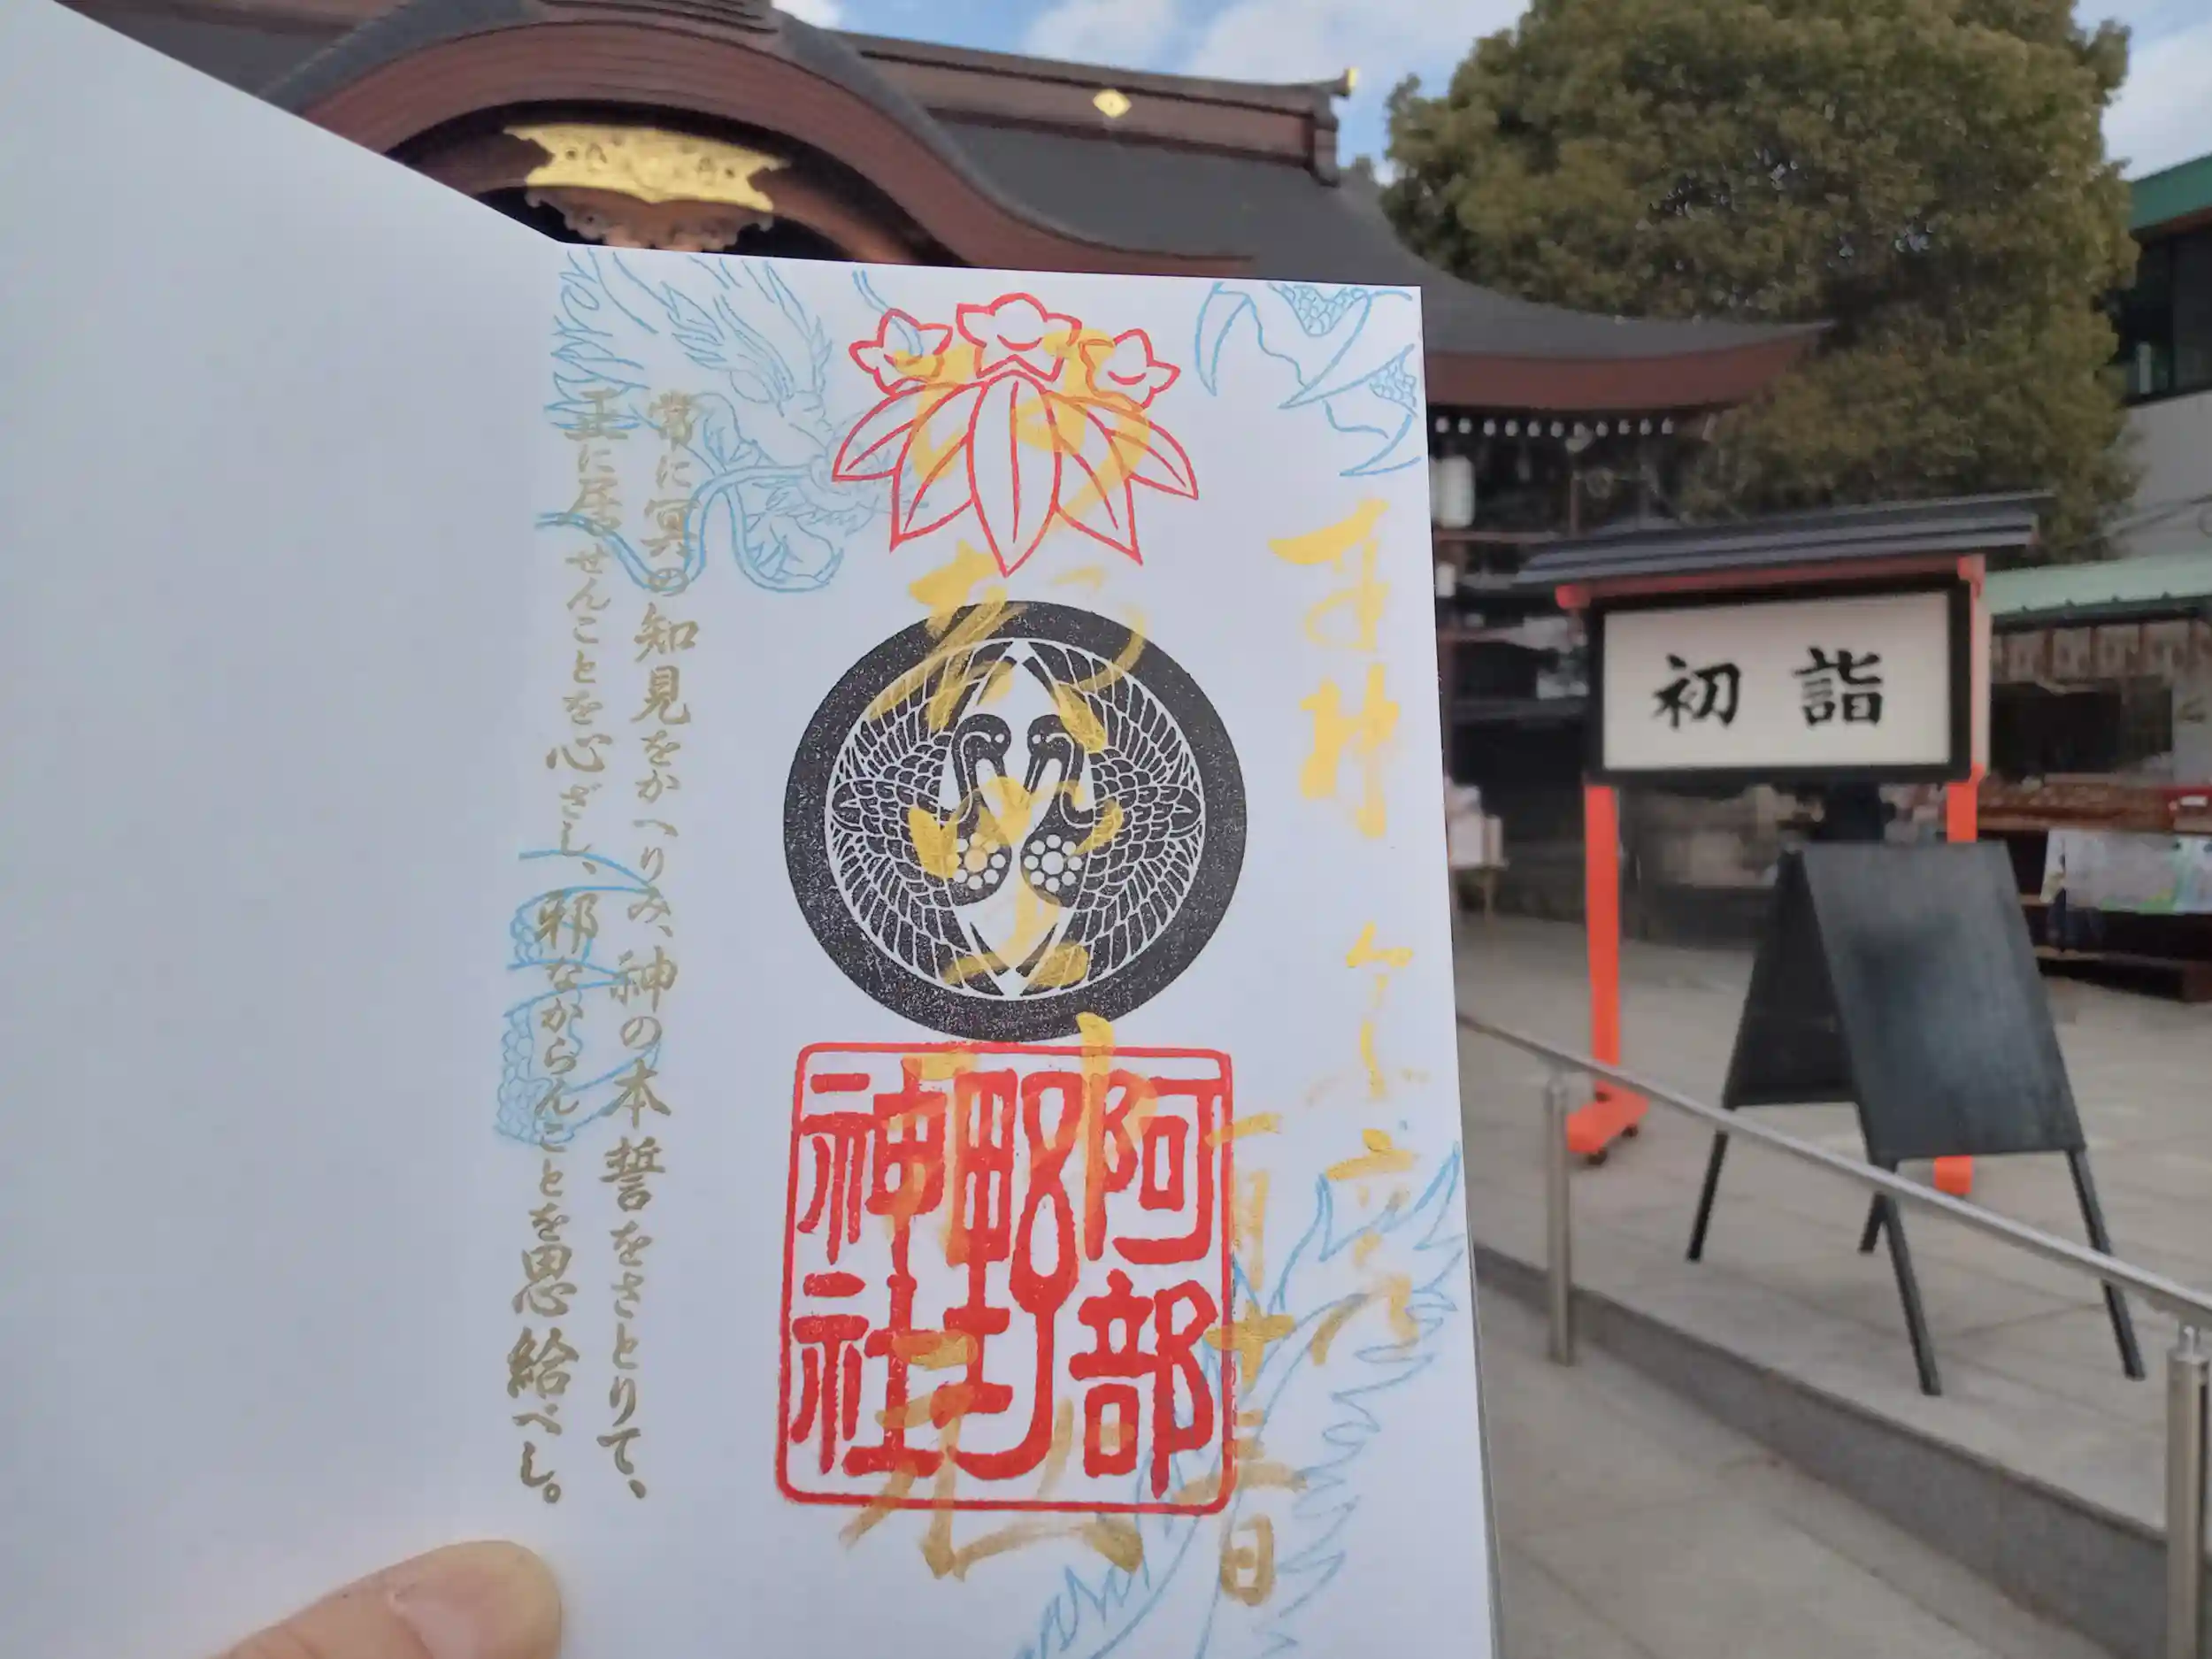 奉拝
令和六年
一月十三日
阿部
野
神社
常に冥の知見をかへりみ、神の本誓をさとりて、
正に居せんことを心ざし、邪なからんことを思給べし。
初詣